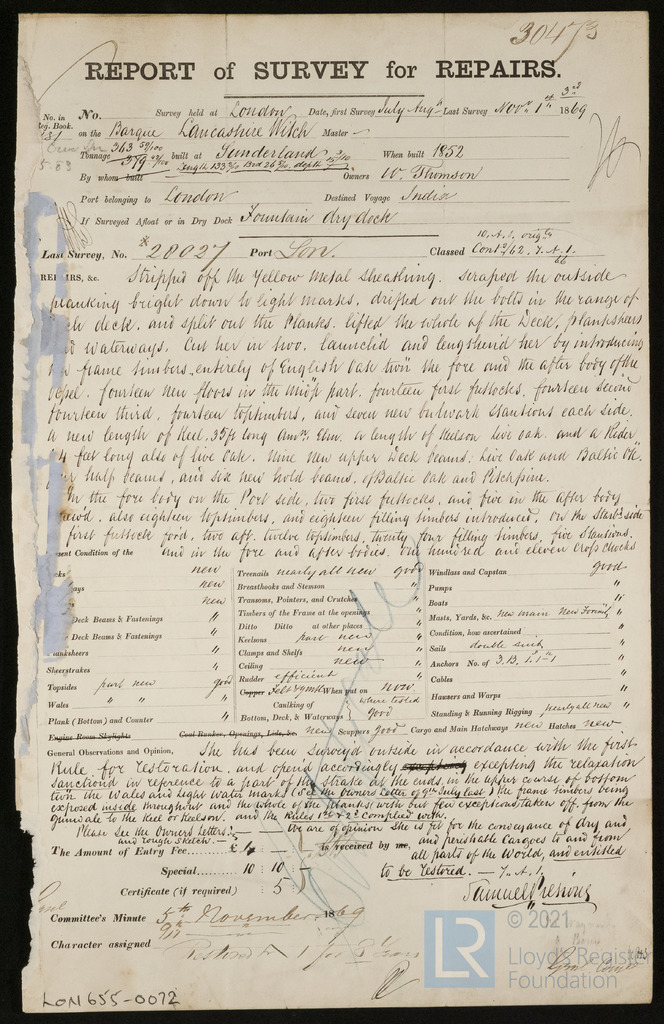 30473
REPORT of SURVEY for REPAIRS.
No. in Reg. Book. No. Survey held at London Date, first Survey July Augt Last Survey Novr 1st 3rd 1869
on the Barque Lancashire Witch Master
Tonnage 363 59/100 built at Sunderland When built 1852
By whom built Length 133 Brd 26 depth Owners W. Thomson
Port belonging to London Destined Voyage India
If Surveyed Afloat or in Dry Dock Fountain dry dock
10. A.1. origly
Last Survey, No. 28027 Port Lon. Classed Contd/62. 7. A.1.
66
REPAIRS, &c. Stripped off the Yellow Metal Sheathing. Scraped the outside
planking bright down to light marks, drifted out the bolts in the range of
deck. and split out the Planks. lifted the whole of the Deck, planksheers
and waterways. Cut her in two. launched and lengthened her by introducing
frame timbers entirely of English Oak twn the fore and the after body of the
vessel. fourteen new floors in the midp part. fourteen first futtocks, fourteen second
fourteen third, fourteen toptimbers, and seven new bulwark stantions each side.
a new length of Keel, 35ft long Amn. Elm. a length of Keelson Live oak. and a Rider
4 feet long also of live Oak. Nine New upper Deck beams: Live Oak and Baltic Ok.
half beams, and six new hold beams, of Baltic Oak and Pitchpine.
In the fore body on the Port side, two first futtocks, and five in the after body
renewd. also eighteen toptimbers, and eighteen filling timbers introduced. On the Starbd side
first futtock ford, two aft. twelve toptimbers, twenty four filling timbers, five stantions.
Present Condition of the and in the fore and after bodies. One hundred and eleven Cross Chocks
new Treenails nearly all new good Windlass and Capstan good
new Breasthooks and Stemson " Pumps "
new Transoms, Pointers, and Crutches " Boats "
Deck Beams & Fastenings " Timbers of the Frame at the openings " Masts, Yards, &c. new main "
Deck Beams & Fastenings " Ditto Ditto at other places " Condition, how ascertained "
Planksheers " Keelsons part new " Sails double suit "
Sheerstrakes " Clamps and Shelfs new " Anchors No. of 3.B. 1.1-1 "
Topsides part new good Ceiling new " Cables "
Wales " " " Rudder efficient Hawsers and Warps "
Plank (Bottom) and Counter " Copper Felt & ymtl When put on now. Standing & Running Rigging nearly all new "
Caulking of Bottom, Deck, & Waterways where tested good
Engine Room Skylights Coal Bunker, Openings, Lids, &c. new Scuppers good Cargo and Main Hatchways new Hatches new
General Observations and Opinion, She has been Surveyd outside in accordance with the first
Rule for restoration. and opend accordingly excepting the relaxation
sanctiond in reference to a part of the strake at the ends, in the upper course of bottom
twn the Wales and light water mark (See the Owners Letter of 9th July last) the frame timbers being
exposed inside throughout and the whole of the planks, with but few exceptions, taken off from the
gunwale to the Keel or Keelson. and the Rules 1st & 2d Complied with.
Please see the Owners Letters: We are of opinion She is fit for the conveyance of dry and
and rough Sketch.
The Amount of Entry Fee.....£ is received by me, and perishable Cargoes to and from
all parts of the World, and entitled
Special..... 10 : 10 : to be restored. — 7. A.1.
Certificate (if required) : 5 :
Committee's Minute 5th November 1869
Character assigned Restored to A 1 for 7 Years
LON655-0072
LR © 2021
Lloyd's Register
Foundation